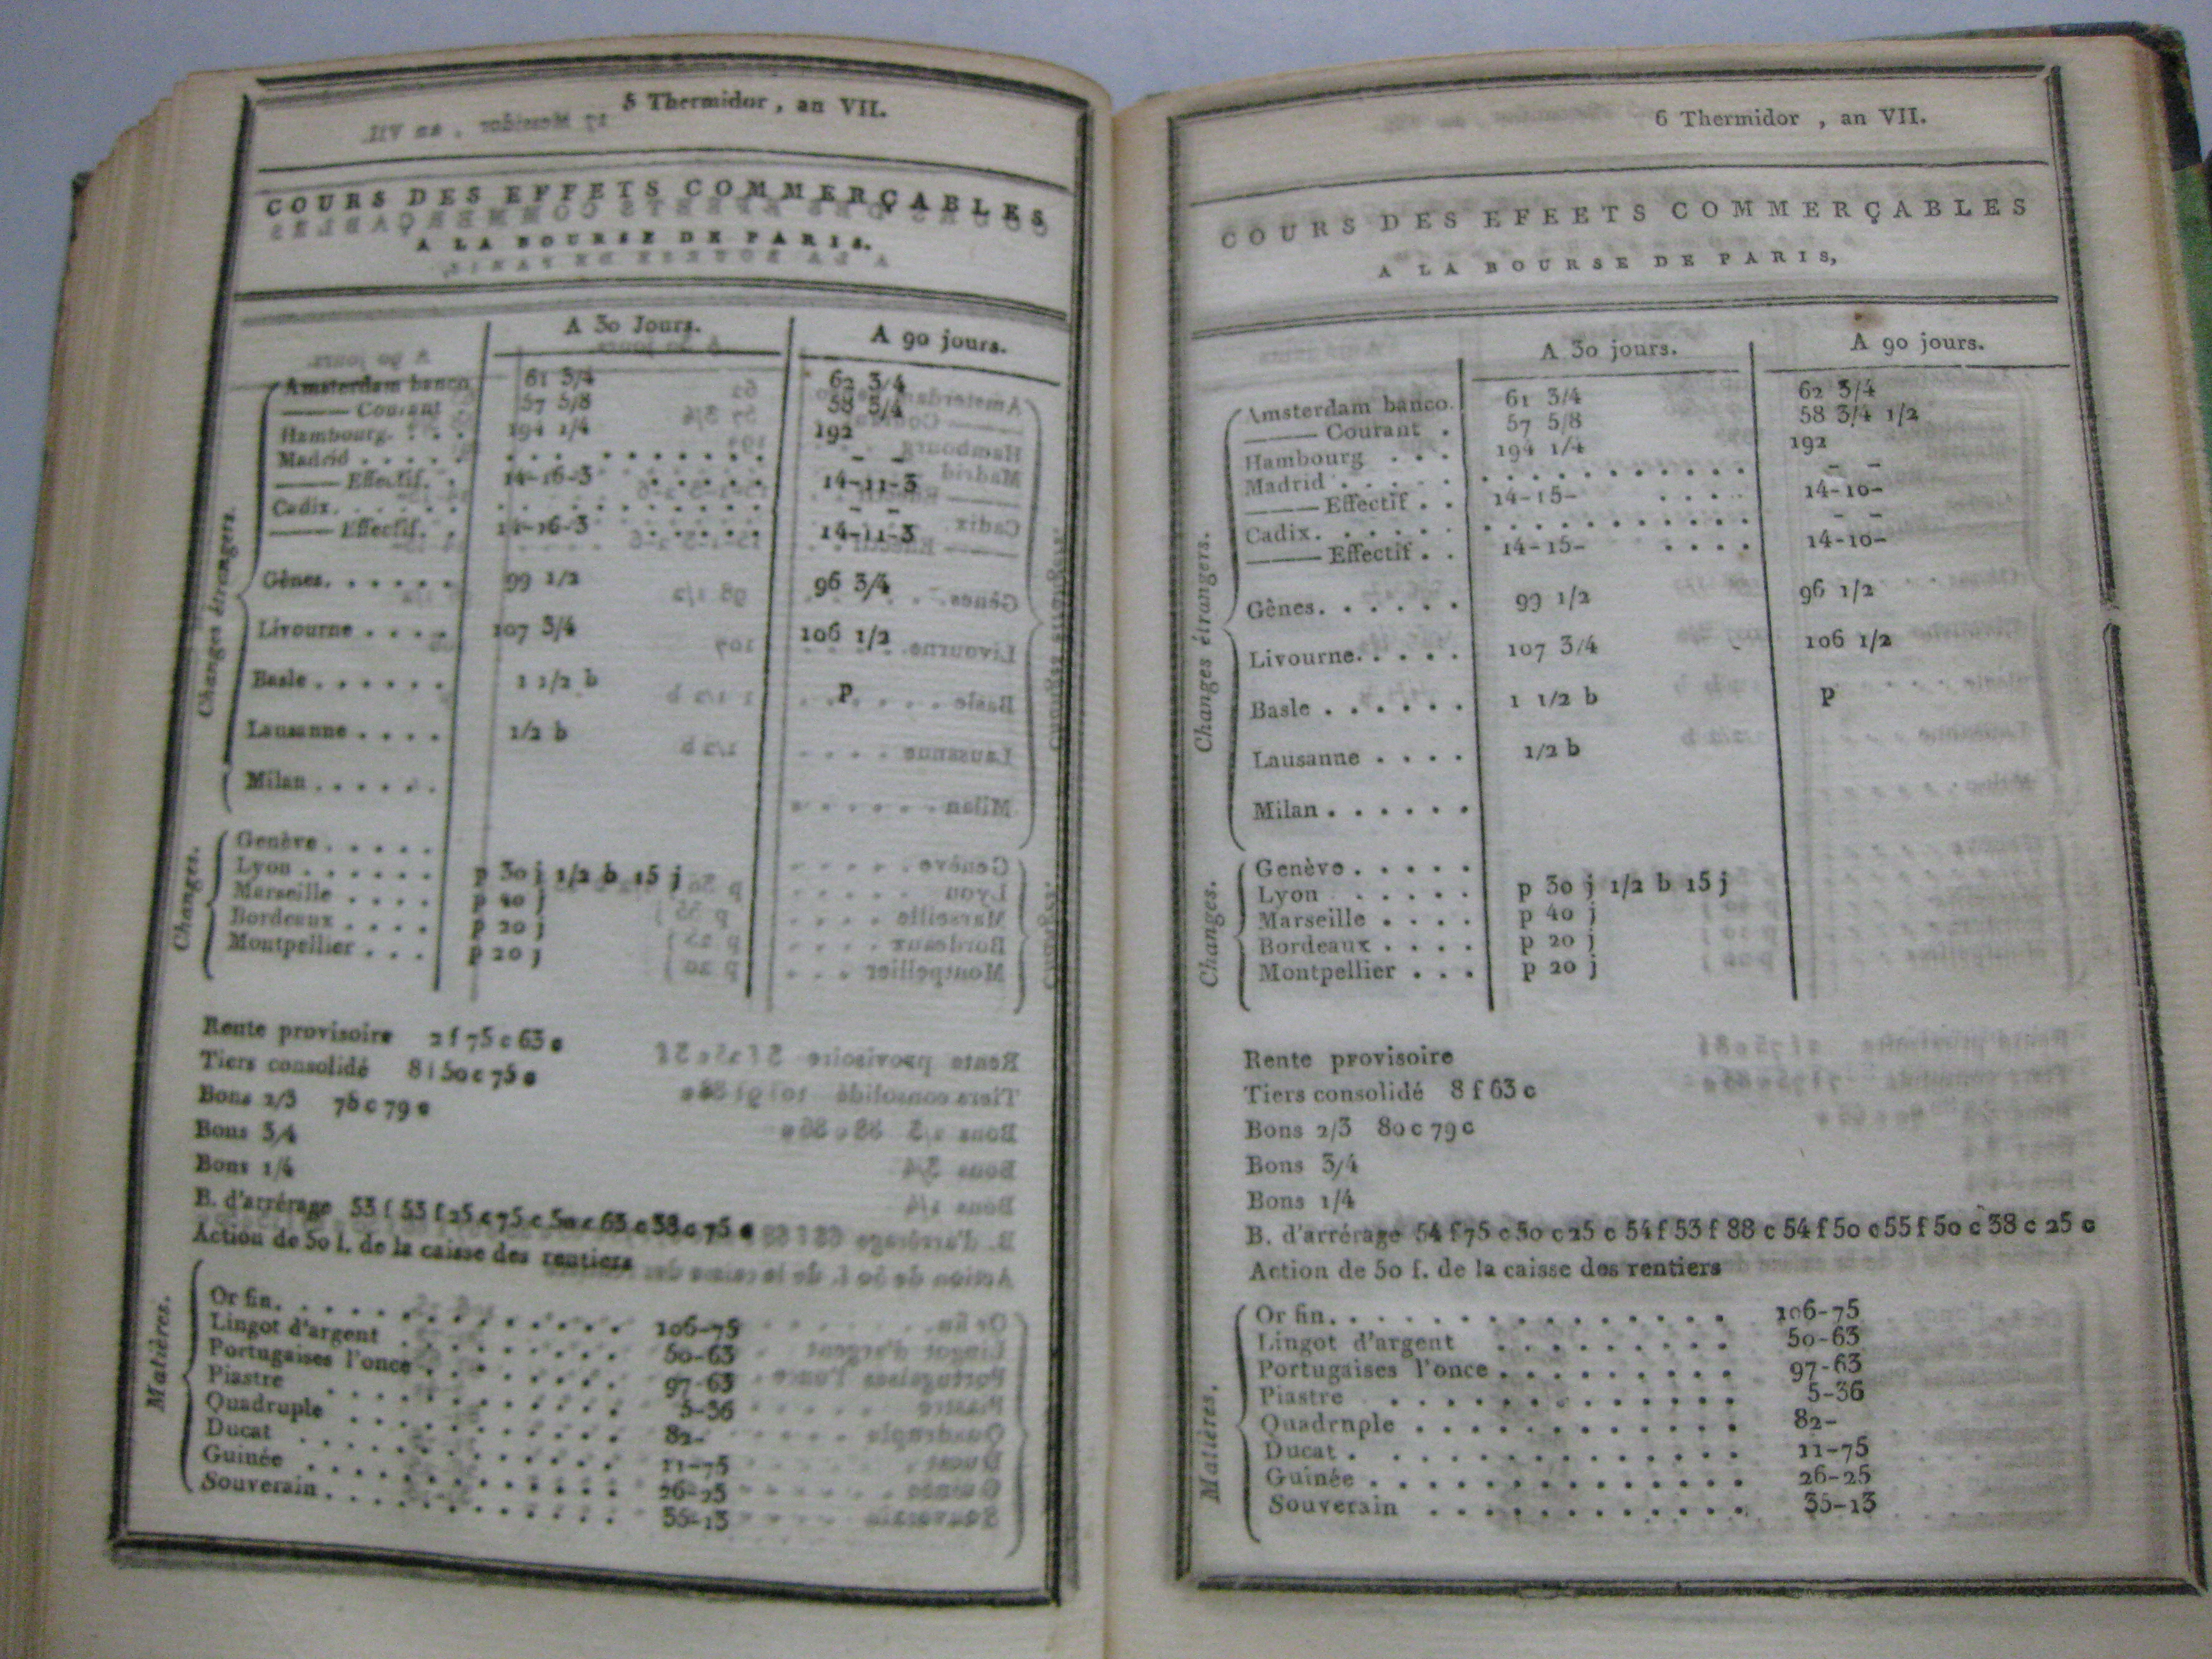 5 Thermidor, an VII.
COURS DES EFFETS COMMERÇABLES
A LA BOURSE DE PARIS.
A 30 Jours. A 90 jours.
Changes étrangers.
Amsterdam banco 61 3/4 62 3/4
—— Courant . 57 5/8 58 3/4
Hambourg. . . . 194 1/4 192
Madrid . . . . .
—— Effectif. . 14-16-3 14-11-3
Cadix. . . . . .
—— Effectif. . 14-16-3 14-11-3
Gênes. . . . . . 99 1/2 96 3/4
Livourne . . . . 107 3/4 106 1/2
Basle . . . . . . 1 1/2 b P
Lausanne . . . . 1/2 b
Milan . . . . . .
Changes.
Genève . . . . .
Lyon . . . . . . p 30 j 1/2 b 15 j
Marseille . . . . p 40 j
Bordeaux . . . . p 20 j
Montpellier . . . p 20 j
Rente provisoire 2 f 75 c 63 c
Tiers consolidé 8 f 50 c 75 c
Bons 2/3 78 c 79 c
Bons 3/4
Bons 1/4
B. d'arrérage 53 f 53 f 25 c 75 c 50 c 63 c 38 c 75 c
Action de 50 l. de la caisse des rentiers
Matières.
Or fin. . . . . . . . . . . . . 106-75
Lingot d'argent . . . . . . . . 50-63
Portugaises l'once . . . . . . . 97-63
Piastre . . . . . . . . . . . . 5-36
Quadruple . . . . . . . . . . . 82-
Ducat . . . . . . . . . . . . . 11-75
Guinée . . . . . . . . . . . . 26-25
Souverain . . . . . . . . . . . 35-13
6 Thermidor , an VII.
COURS DES EFEETS COMMERÇABLES
A LA BOURSE DE PARIS,
A 30 jours. A 90 jours.
Changes étrangers.
Amsterdam banco. 61 3/4 62 3/4
—— Courant . 57 5/8 58 3/4 1/2
Hambourg . . . 194 1/4 192
Madrid . . . . .
—— Effectif . . 14-15- 14-10-
Cadix. . . . . .
—— Effectif . . 14-15- 14-10-
Gênes. . . . . . 99 1/2 96 1/2
Livourne. . . . . 107 3/4 106 1/2
Basle . . . . . . 1 1/2 b p
Lausanne . . . . 1/2 b
Milan . . . . . .
Changes.
Genève . . . . .
Lyon . . . . . p 30 j 1/2 b 15 j
Marseille . . . . p 40 j
Bordeaux . . . . p 20 j
Montpellier . . . p 20 j
Rente provisoire
Tiers consolidé 8 f 63 c
Bons 2/3 80 c 79 c
Bons 3/4
Bons 1/4
B. d'arrérage 54 f 75 c 50 c 25 c 54 f 53 f 88 c 54 f 50 c 55 f 50 c 38 c 25 c
Action de 50 f. de la caisse des rentiers
Matières.
Or fin. . . . . . . . . . . . . . 106-75
Lingot d'argent . . . . . . . . . 50-63
Portugaises l'once . . . . . . . . 97-63
Piastre . . . . . . . . . . . . . 5-36
Quadrnple . . . . . . . . . . . . 82-
Ducat . . . . . . . . . . . . . . 11-75
Guinée . . . . . . . . . . . . . 26-25
Souverain . . . . . . . . . . . . 35-13